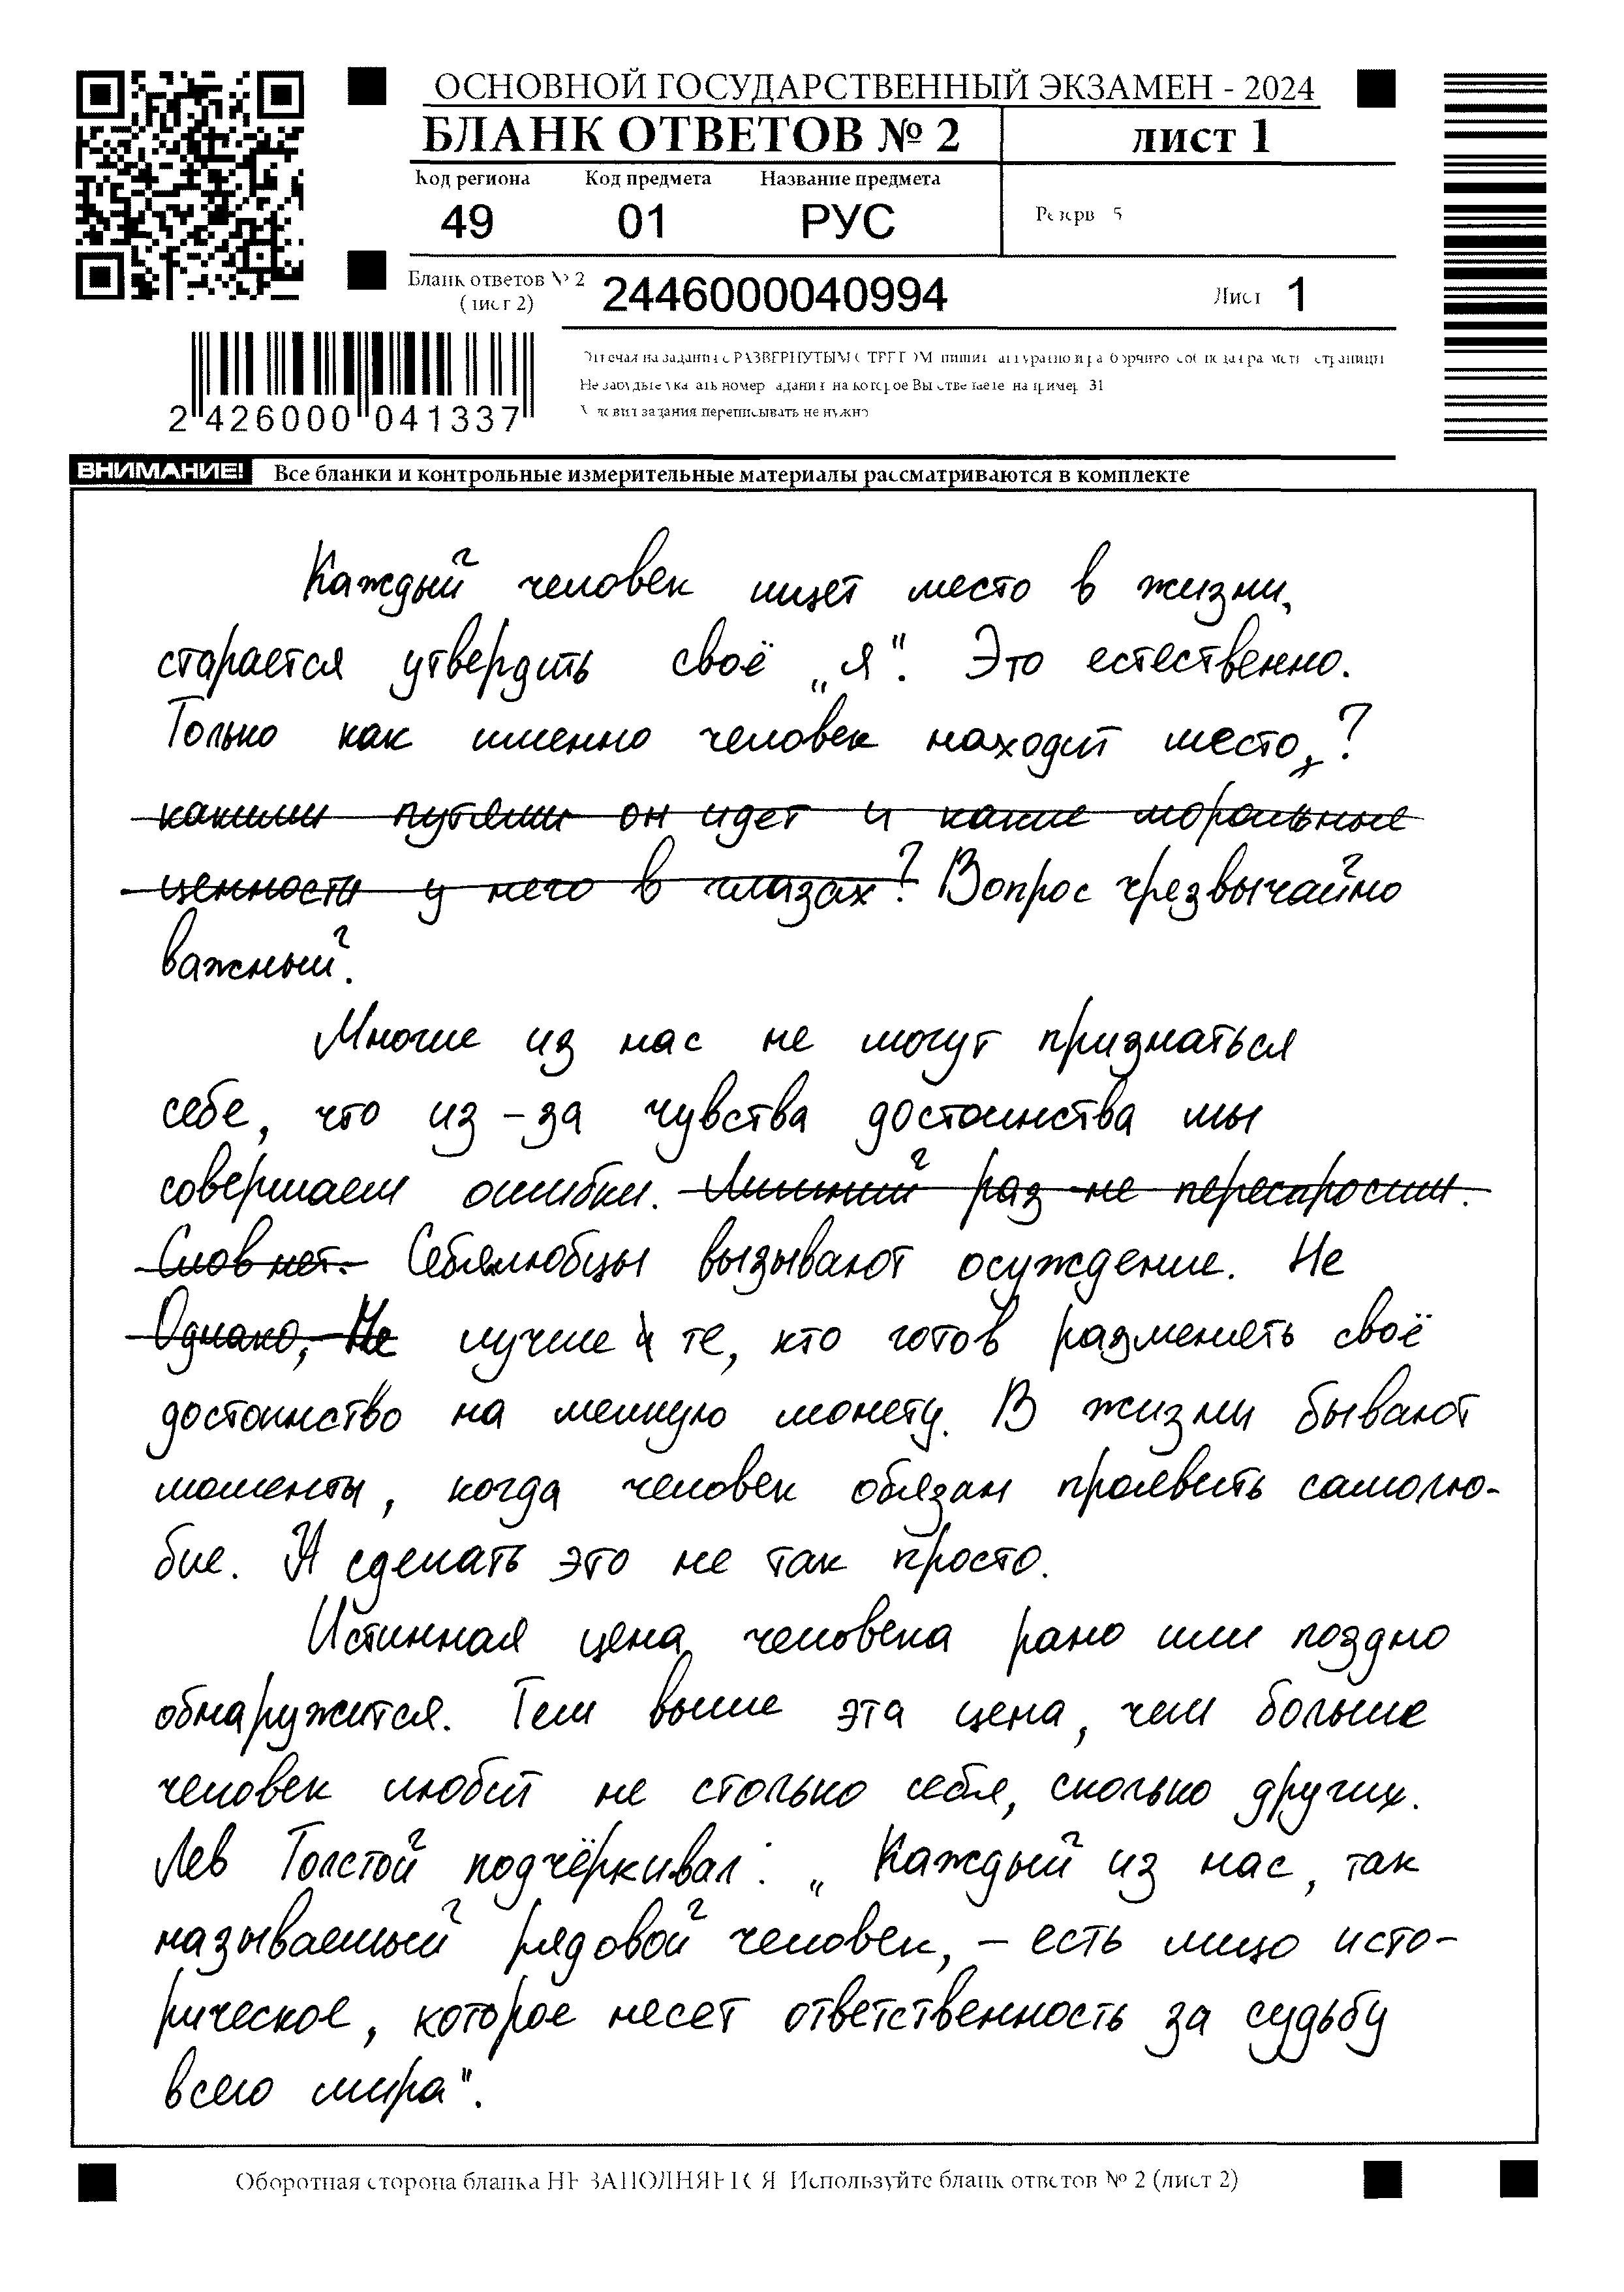 ОСНОВНОЙ ГОСУДАРСТВЕННЫЙ ЭКЗАМЕН - 2024
БЛАНК ОТВЕТОВ № 2 лист 1
Код региона Код предмета Название предмета
49 01 РУС Резерв 5
Бланк ответов № 2
(лист 2) 2446000040994 Лист 1
Не забудьте указать номер задания на которое Вы отвечаете например 31
Условия задания переписывать не нужно
2 426000 041337
ВНИМАНИЕ! Все бланки и контрольные измерительные материалы рассматриваются в комплекте
Каждый человек ищет место в жизни,
старается утвердить своё „я“. Это естественно.
Только как именно человек находит место,?
какими путями он идет и какие моральные
ценности у него в глазах? Вопрос чрезвычайно
важный.
Многие из нас не могут признаться
себе, что из-за чувства достоинства мы
совершаем ошибки. Лишний раз не переспросим.
Слов нет. Себялюбцы вызывают осуждение. Не
Однако, Не лучше и те, кто готов разменять своё
достоинство на мелкую монету. В жизни бывают
моменты, когда человек обязан проявить самолю-
бие. И сделать это не так просто.
Истинная цена человека рано или поздно
обнаружится. Тем выше эта цена, чем больше
человек любит не столько себя, сколько других.
Лев Толстой подчёркивал: „Каждый из нас, так
называемый рядовой человек, - есть лицо исто-
рическое, которое несет ответственность за судьбу
всего мира“.
Оборотная сторона бланка НЕ ЗАПОЛНЯЕТСЯ Используйте бланк ответов № 2 (лист 2)